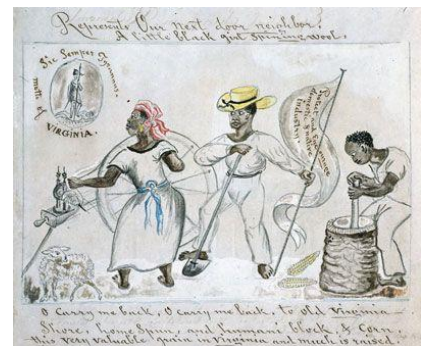 Represents Our next door neighbor.
A little black girl Spinning wool.
Sic Semper Tyrannus.
motto of
VIRGINIA.
Protect and Encourage
domestic & native
Industry
O Carry me back, O carry me back, to old Virginia
Shore, home Spun, and humani block, & Corn.
this very valuable grain in Virginia and much is raised.